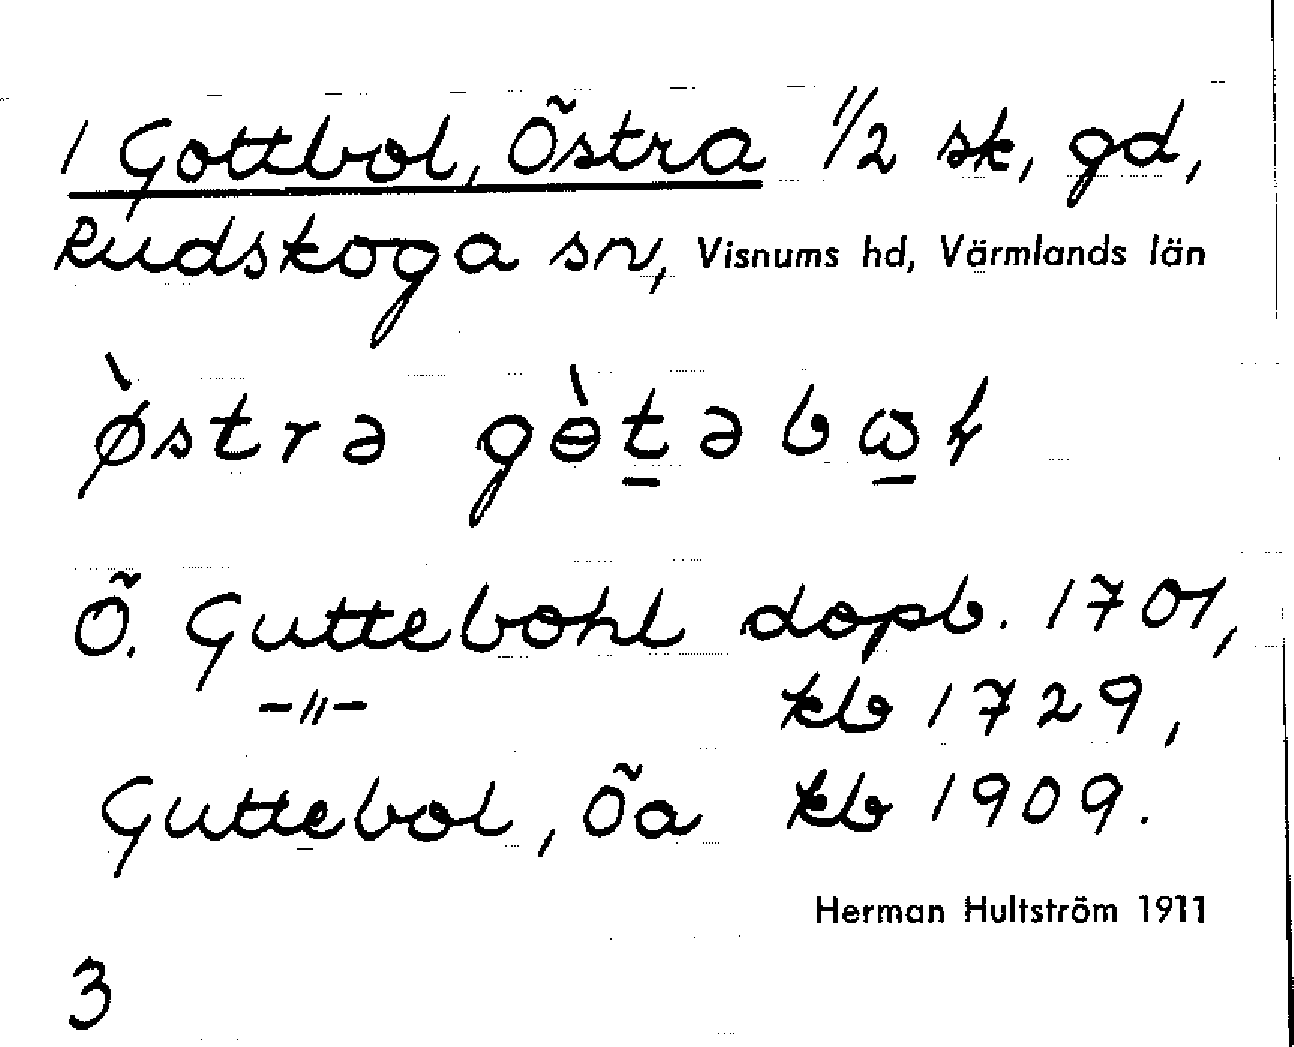 1 Gottbol, Östra 1/2 sk, gd,
Rudskoga sn, Visnums hd, Värmlands län
ø̀strə gɵ̀t̲əbω̲ɫ
Ö. Guttebohl dopb. 1701,
–〃– kb 1729,
Guttebol, Öa kb 1909.
Herman Hultström 1911
3